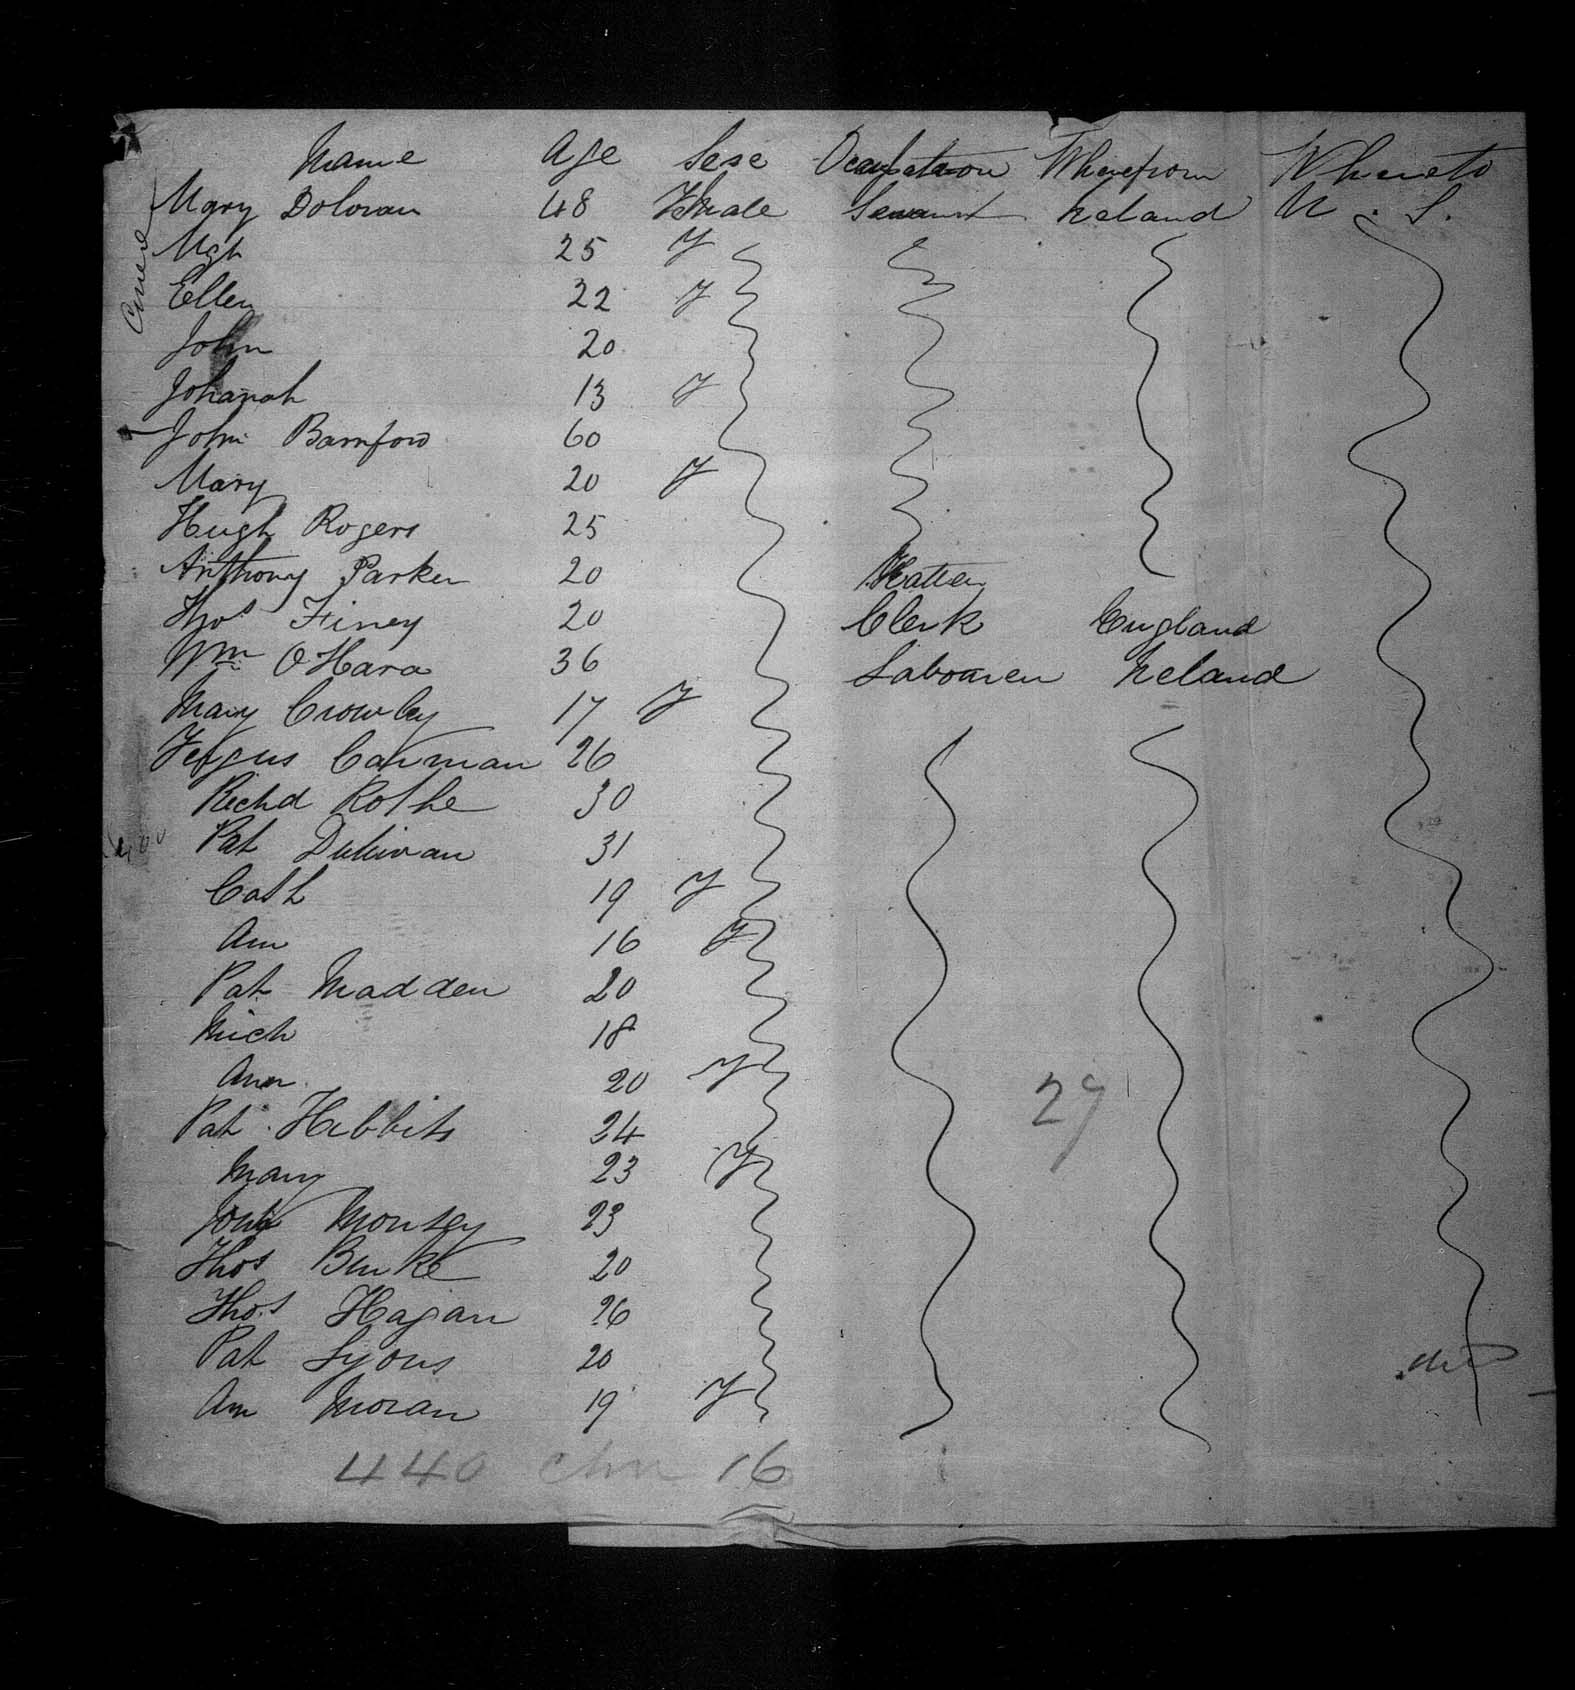 Name Age Sex Occupation Wherefrom Whereto
Mary Doloran 48 Female Servant Ireland U. S.
Mgt 25 F
Ellen 22 F
John 20
Johanah 13 F
John Bamford 60
Mary 20 F
Hugh Rogers 25
Anthony Parker 20 Hatter
Thos Finey 20 Clerk England
Wm O'Hara 36 Labourer Ireland
Mary Crowley 17 F
Fergus Cahman 26
Richd Rothe 30
Pat 31
Cath 19 F
Ann 16 F
Pat Madden 20
Mich 18
Ann 20 F
27
Pat Hibbits 24
Mary 23 F
23
Thos Burke 20
Thos Hagan 26
Pat Lyons 20
Ann Moran 19 F
440 chn 16